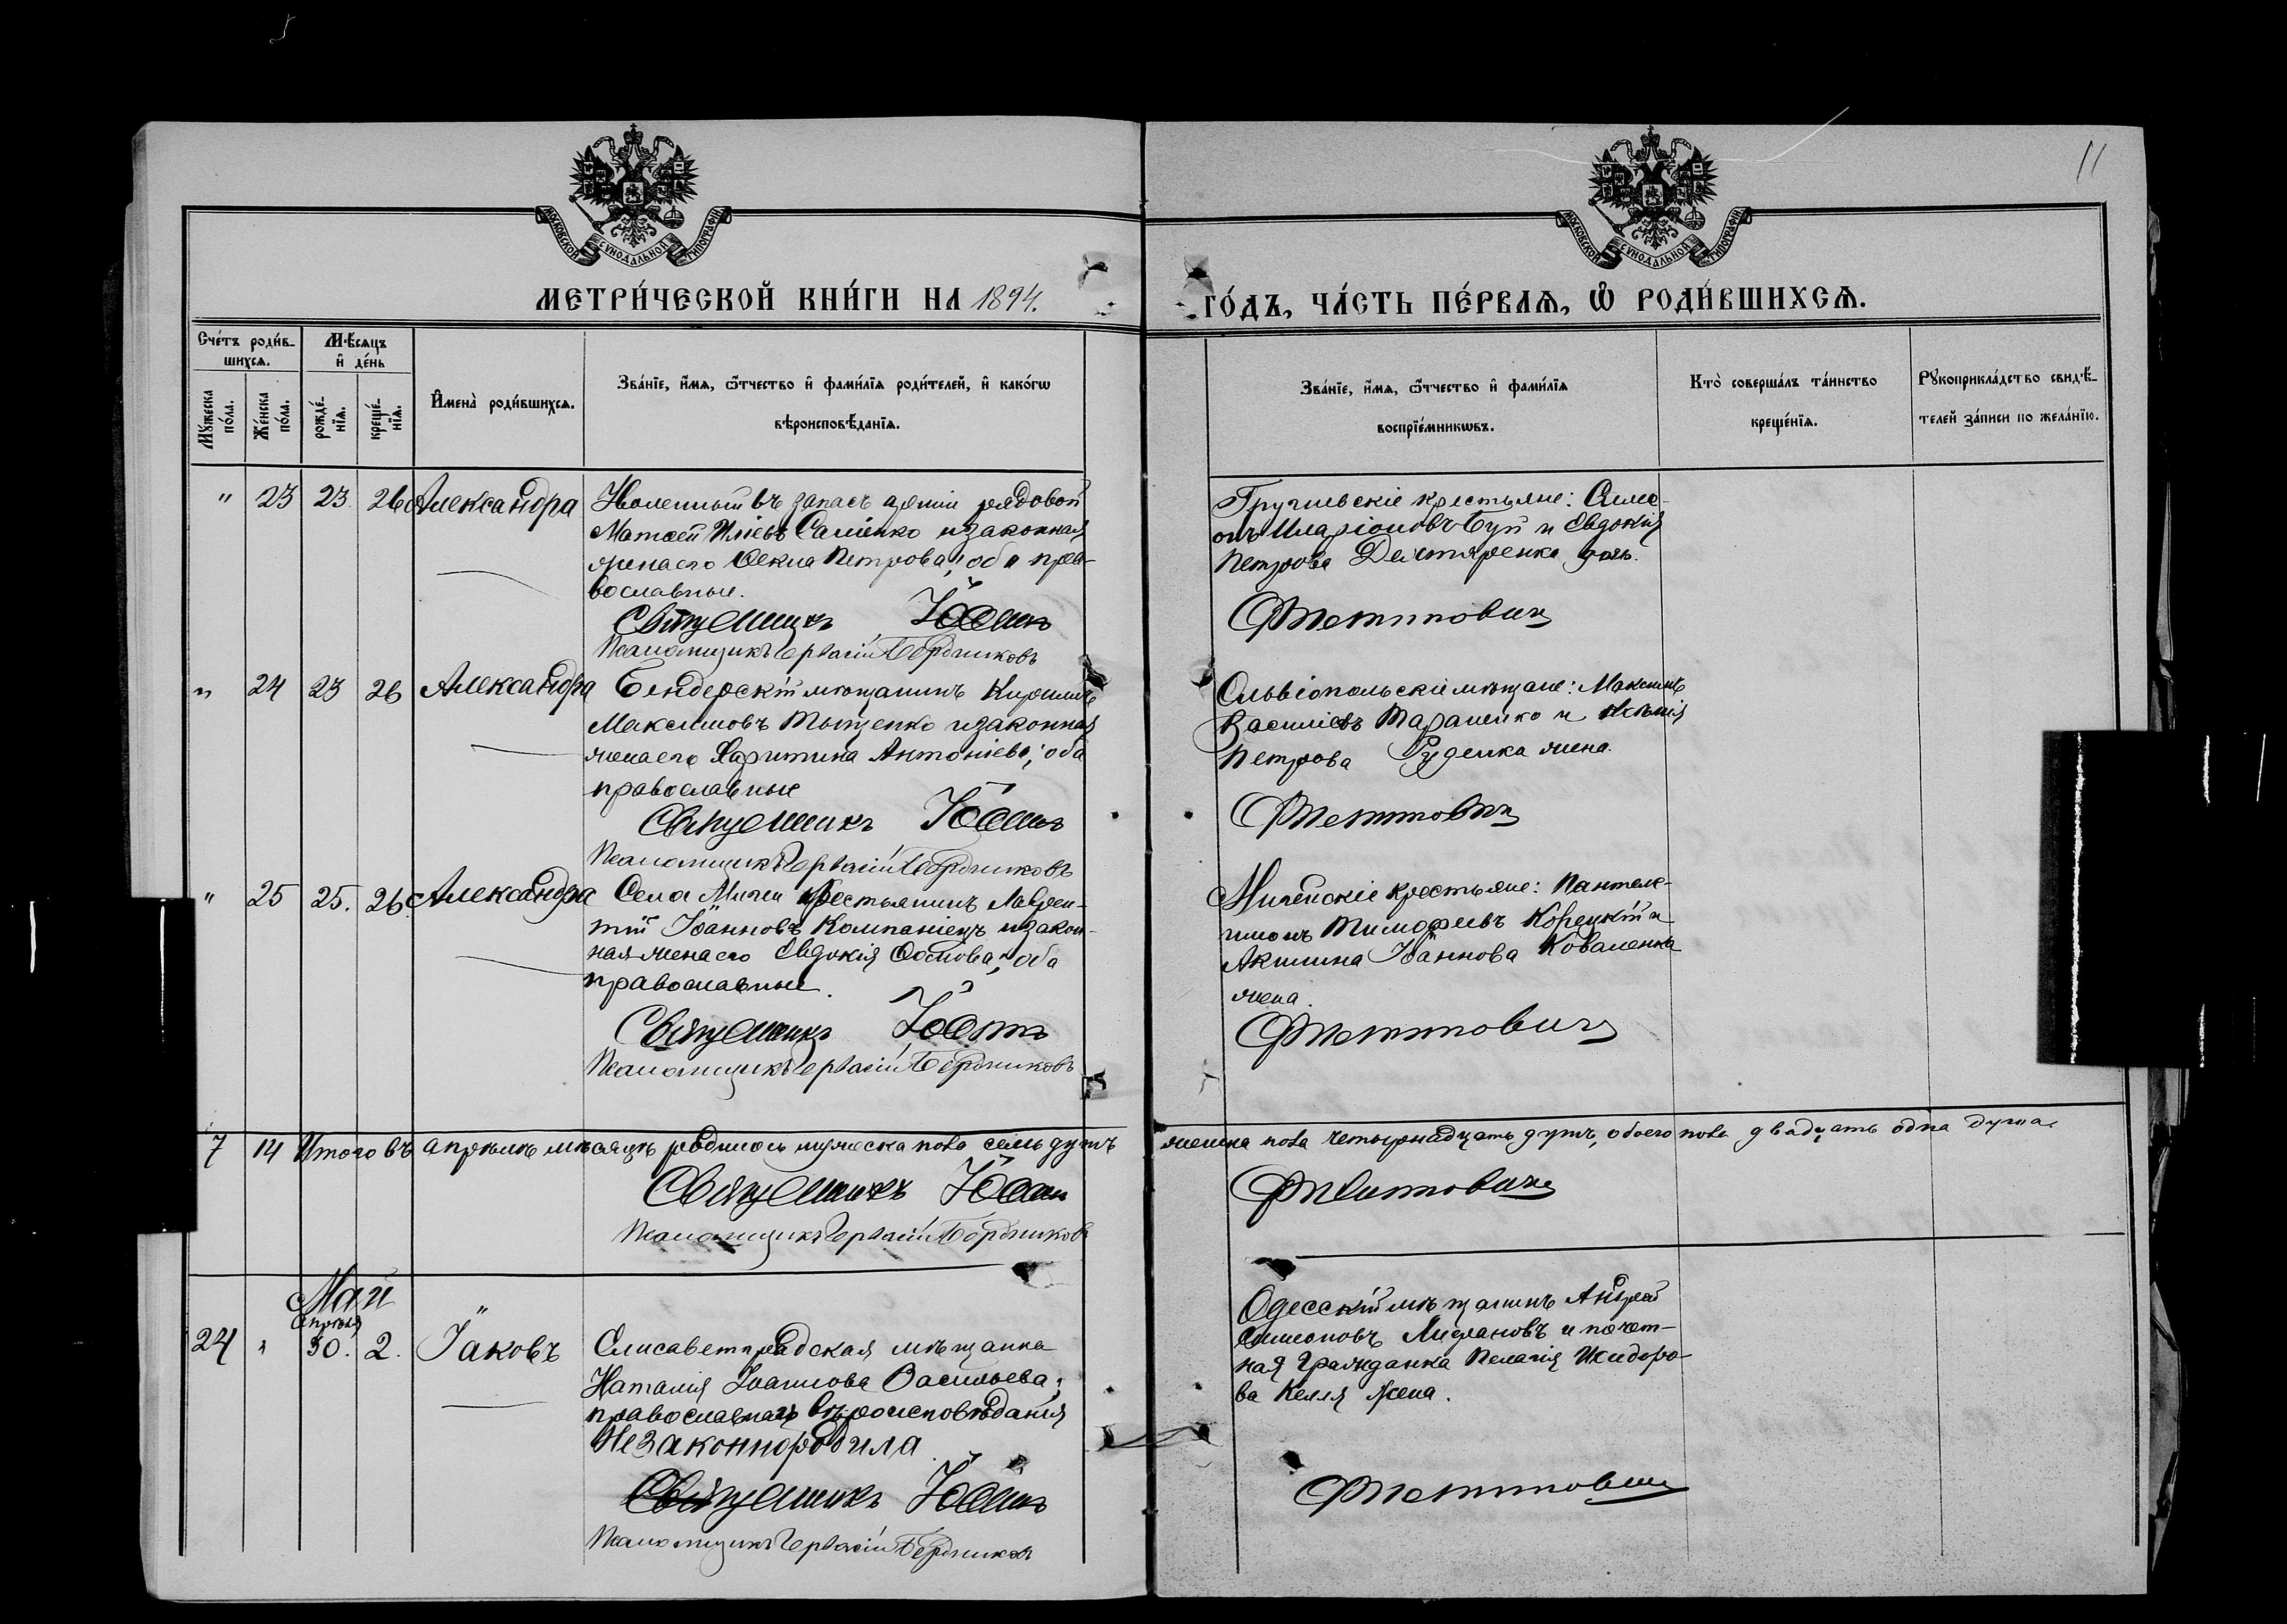 11
МОСКОВСКОЙ СѴНОДАЛЬНОЙ ТИПОГРАФІИ
МОСКОВСКОЙ СѴНОДАЛЬНОЙ ТИПОГРАФІИ
МЕТРИ́ЧЕСКОЙ КНИ́ГИ НА 1894.
ГО́ДЪ, ЧА́СТЬ ПЕ́РВАѦ, Ѡ҆ РОДИ́ВШИХСѦ.
Сче́тъ роди́в-
шихсѧ.
Мꙋ́жеска по́ла.
Же́нска по́ла.
Мѣ́сѧцъ
и҆ де́нь
рожде́-нїѧ.
креще́-нїѧ.
И҆мена̀ роди́вшихсѧ.
Зва́нїе, и҆́мѧ, ѻ҆́тчество и҆ фами́лїѧ роди́телей, и҆ како́гѡ
вѣроисповѣ́данїѧ.
Зва́нїе, и҆́мѧ, ѻ҆́тчество и҆ фами́лїѧ
воспрїе́мникѡвъ.
Кто̀ соверша́лъ та́инство
креще́нїѧ.
Рꙋкоприкла́дство свидѣ́-
телей за́писи по жела́нїю.
" 23 23. 26 Александра
Уволенный въ запасъ арміи рядовой
Матѳей Иліевъ Саліенко и законная
жена его Ѳекла Петрова; оба пра-
вославные.
Священникъ Іоаннъ
Псаломщикъ Гервасій Бердниковъ
Грушевскіе крестьяне: Симе-
онъ Иларіоновъ Буй и Евдокія
Петрова
" 24 23 26 Александра
Бендерскій мѣщанинъ Кириллъ
Максимовъ Тыщенко и законная
жена его Харитина Антоніева; оба
православные
Священникъ Іоаннъ
Псаломщикъ Гервасій Бердниковъ
Ольвіопольскіе мѣщане: Максимъ
Василіевъ Тараненко и
Петрова Руденка жена.
" 25 25. 26. Александра
Села Мигеи крестьянинъ Лаврен-
тій Іоанновъ Компаніецъ и закон-
ная жена его Евдокія; оба
православные.
Священникъ Іоаннъ
Псаломщикъ Гервасій Бердниковъ
Мигейскіе крестьяне: Пантеле-
имонъ Тимоѳеевъ Корецкій и
Акилина Іоаннова Коваленка
жена.
7 14 Итого въ апрѣлѣ мѣсяцѣ родилось мужеска пола семь душъ
женска пола четырнадцать душъ, обоего пола двадцать одна душа.
Священникъ Іоаннъ
Псаломщикъ Гервасій Бердниковъ
Май
Апрѣля
24 " 30. 2. Іаковъ
Елисаветградская мѣщанка
Наталія Васильева;
православнаго вѣроисповѣданія
Незаконнородила
Священникъ Іоаннъ
Псаломщикъ Гервасій Бердниковъ
Одесскій мѣщанинъ Андрей
Симеоновъ и почет-
ная гражданка Пелагія Исидоро-
ва Келля жена.